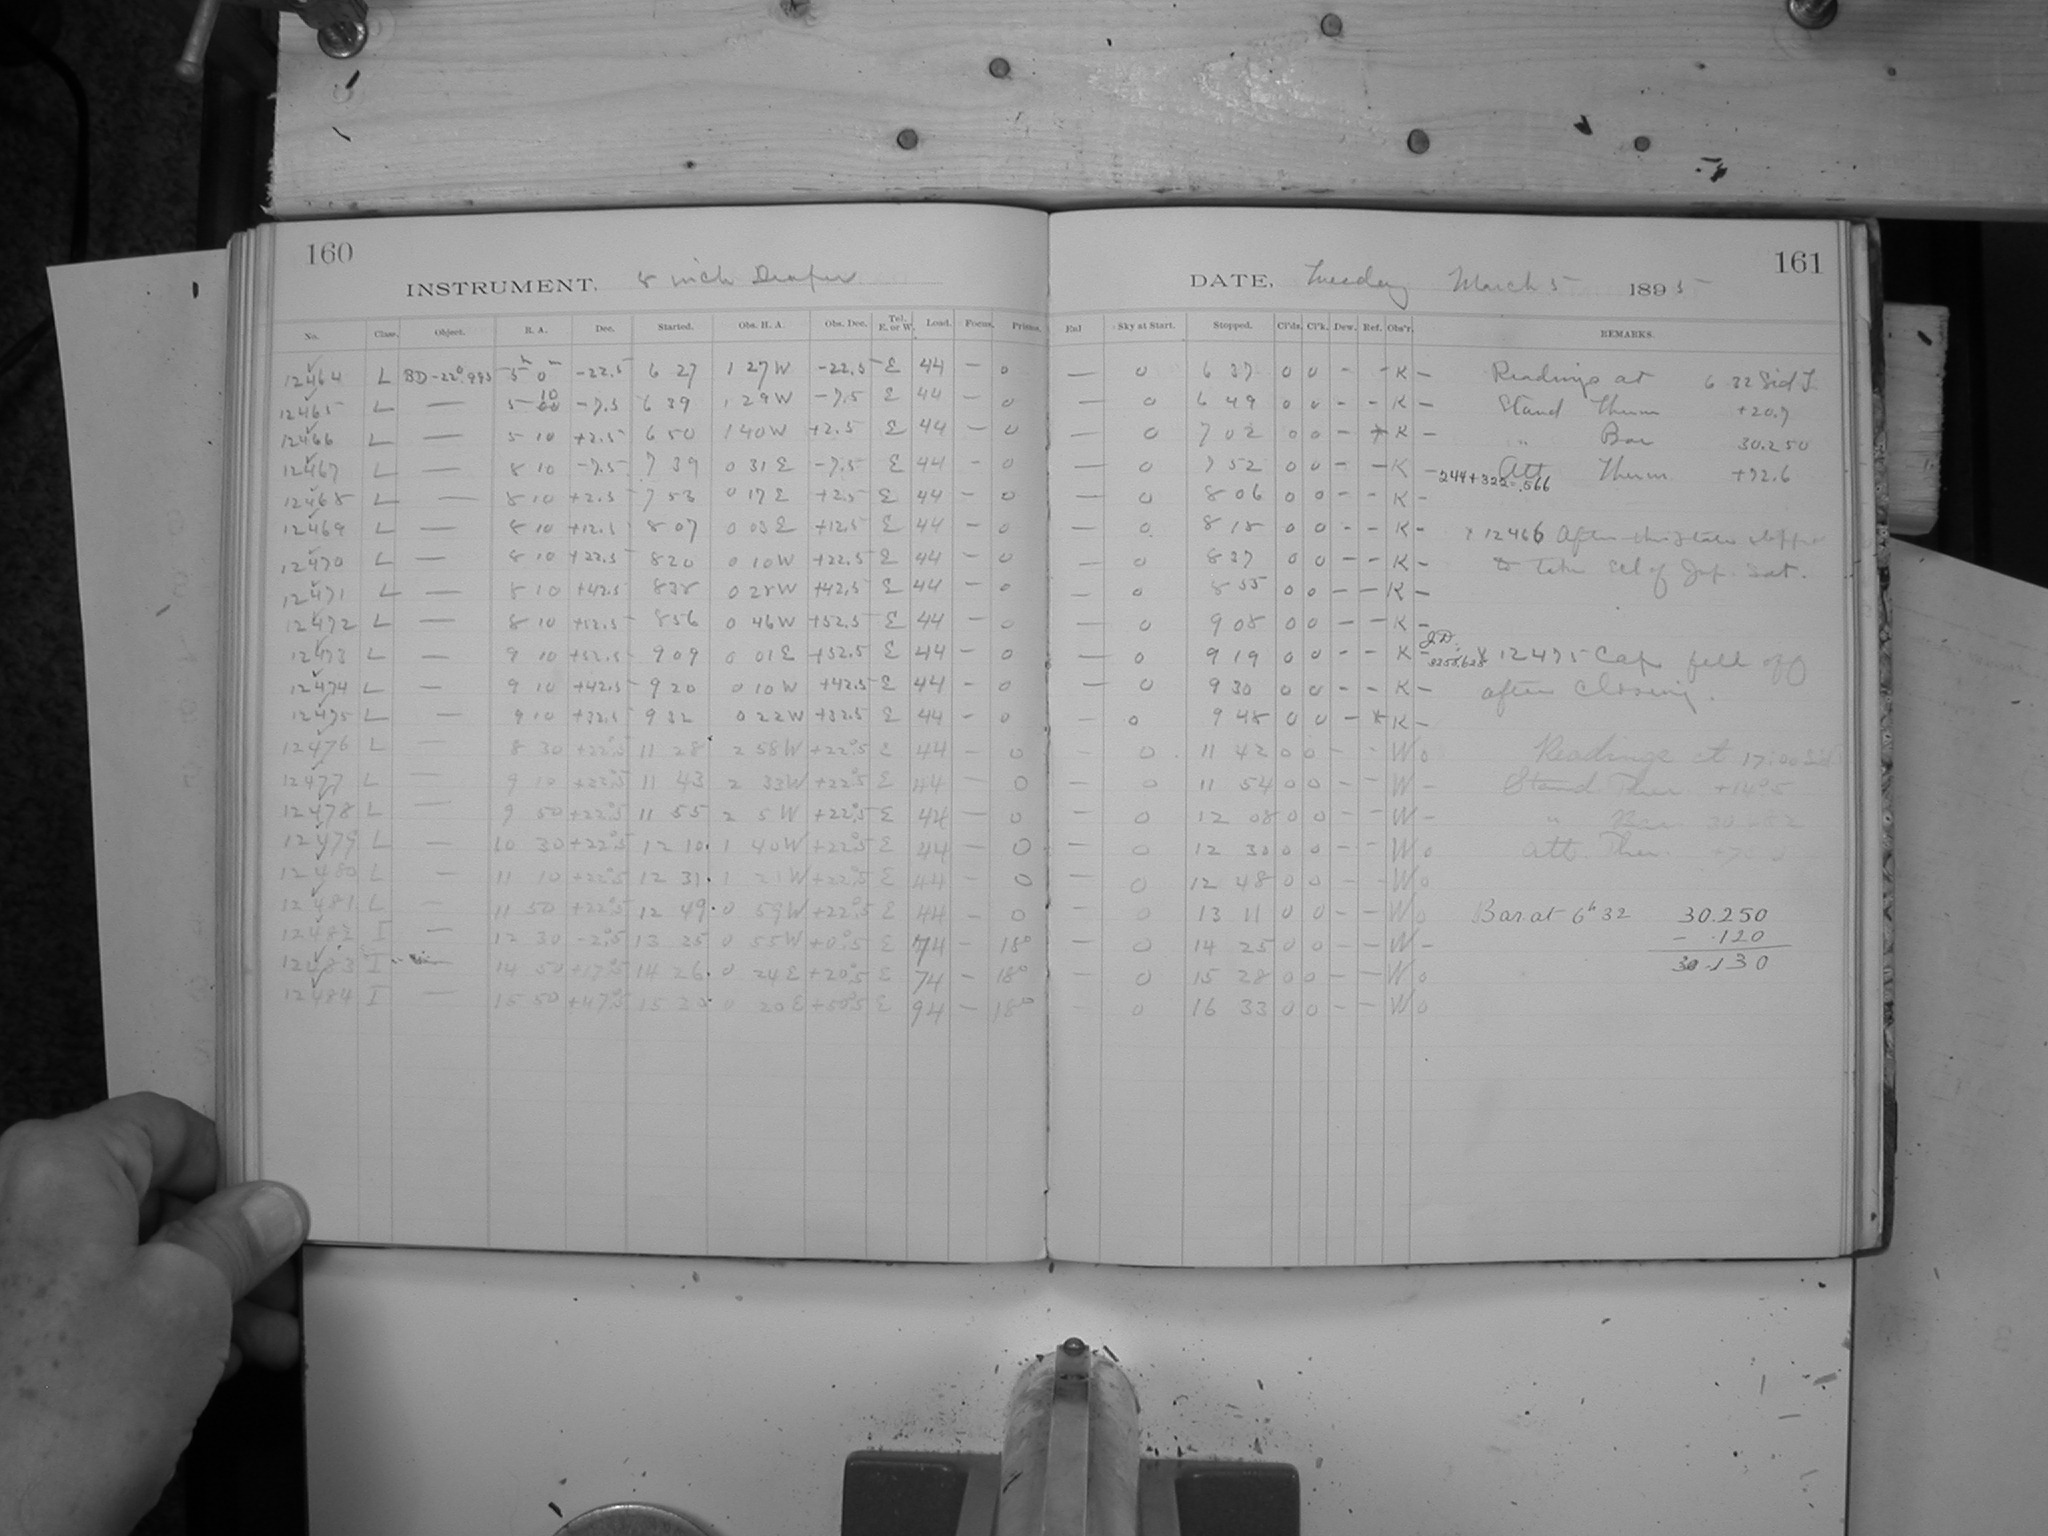 160
INSTRUMENT. 8 inch Draper
No. Class. Object. R. A. Dec. Started. Obs. H. A. Obs. Dec. Tel. E. or W. Load. Focus. Prisms.
12464 L BD-22°993 5h 0m -22.5 6 27 1 27W -22.5 E 44 — 0
12465 L — 5 10 -7.5 6 39 1 29W -7.5 E 44 — 0
12466 L — 5 10 +2.5 6 50 1 40W +2.5 E 44 — 0
12467 L — 8 10 -7.5 7 39 0 31E -7.5 E 44 - 0
12468 L — 8 10 +2.5 7 53 0 17E +2.5 E 44 — 0
12469 L — 8 10 +12.5 8 07 0 03E +12.5 E 44 — 0
12470 L — 8 10 +22.5 8 20 0 10W +22.5 E 44 — 0
12471 L — 8 10 +42.5 8 38 0 28W +42.5 E 44 — 0
12472 L — 8 10 +52.5 8 56 0 46W +52.5 E 44 — 0
12473 L — 9 10 +52.5 9 09 0 01E +52.5 E 44 — 0
12474 L — 9 10 +42.5 9 20 0 10W +42.5 E 44 — 0
12475 L — 9 10 +32.5 9 32 0 22W +32.5 E 44 — 0
12476 L — 8 30 +22°.5 11 28 2 58W +22°.5 E 44 — 0
12477 L — 9 10 +22°.5 11 43 2 33W +22°.5 E 44 — 0
12478 L — 9 50 +22°.5 11 55 2 5W +22°.5 E 44 — 0
12479 L — 10 30 +22°.5 12 10 1 40W +22°.5 E 44 — 0
12480 L — 11 10 +22°.5 12 31 1 21W +22°.5 E 44 — 0
12481 L — 11 50 +22°.5 12 49 0 59W +22°.5 E 44 — 0
12482 I — 12 30 -2°.5 13 25 0 55W +0°.5 E 74 — 18°
12483 I — 14 50 +17°.5 14 26 0 24E +20°.5 E 74 — 18°
12484 I — 15 50 +47°.5 15 0 20E +50°.5 E 94 — 18°
161
DATE. Tuesday March 5 1895
Enl Sky at Start. Stopped. Cl'ds. Cl'k. Dew. Ref. Obs'r. REMARKS.
— 0 6 37 0 0 - - K - Readings at 6 32 Sid T.
— 0 6 49 0 0 - - K - Stand Therm +20.7
— 0 7 02 0 0 - * K - " Bar 30.250
— 0 7 52 0 0 - - K - Att Therm +72.6
244+322 .566
— 0 8 06 0 0 - - K -
— 0 8 18 0 0 - - K - x 12466 After this plate stopped
— 0 8 37 0 0 - - K - to take Ecl of Jup. Sat.
— 0 8 55 0 0 - - K -
— 0 9 08 0 0 - - K -
J.D.
— 0 9 19 0 0 - - K - x 12475 Cap fell off
— 0 9 30 0 0 - - K - after closing.
— 0 9 48 0 0 - * K -
— 0 11 42 0 0 - - W 0 Readings at 17:00 Sid
— 0 11 54 0 0 - - W - Stand Ther +14°.5
— 0 12 08 0 0 - - W - " Bar
— 0 12 30 0 0 - - W 0 Att. Ther.
— 0 12 48 0 0 - - W 0
— 0 13 11 0 0 - - W 0 Bar at 6h 32 30.250
— 0 14 25 0 0 - - W - - .120
— 0 15 28 0 0 - - W 0 30.130
— 0 16 33 0 0 - - W 0